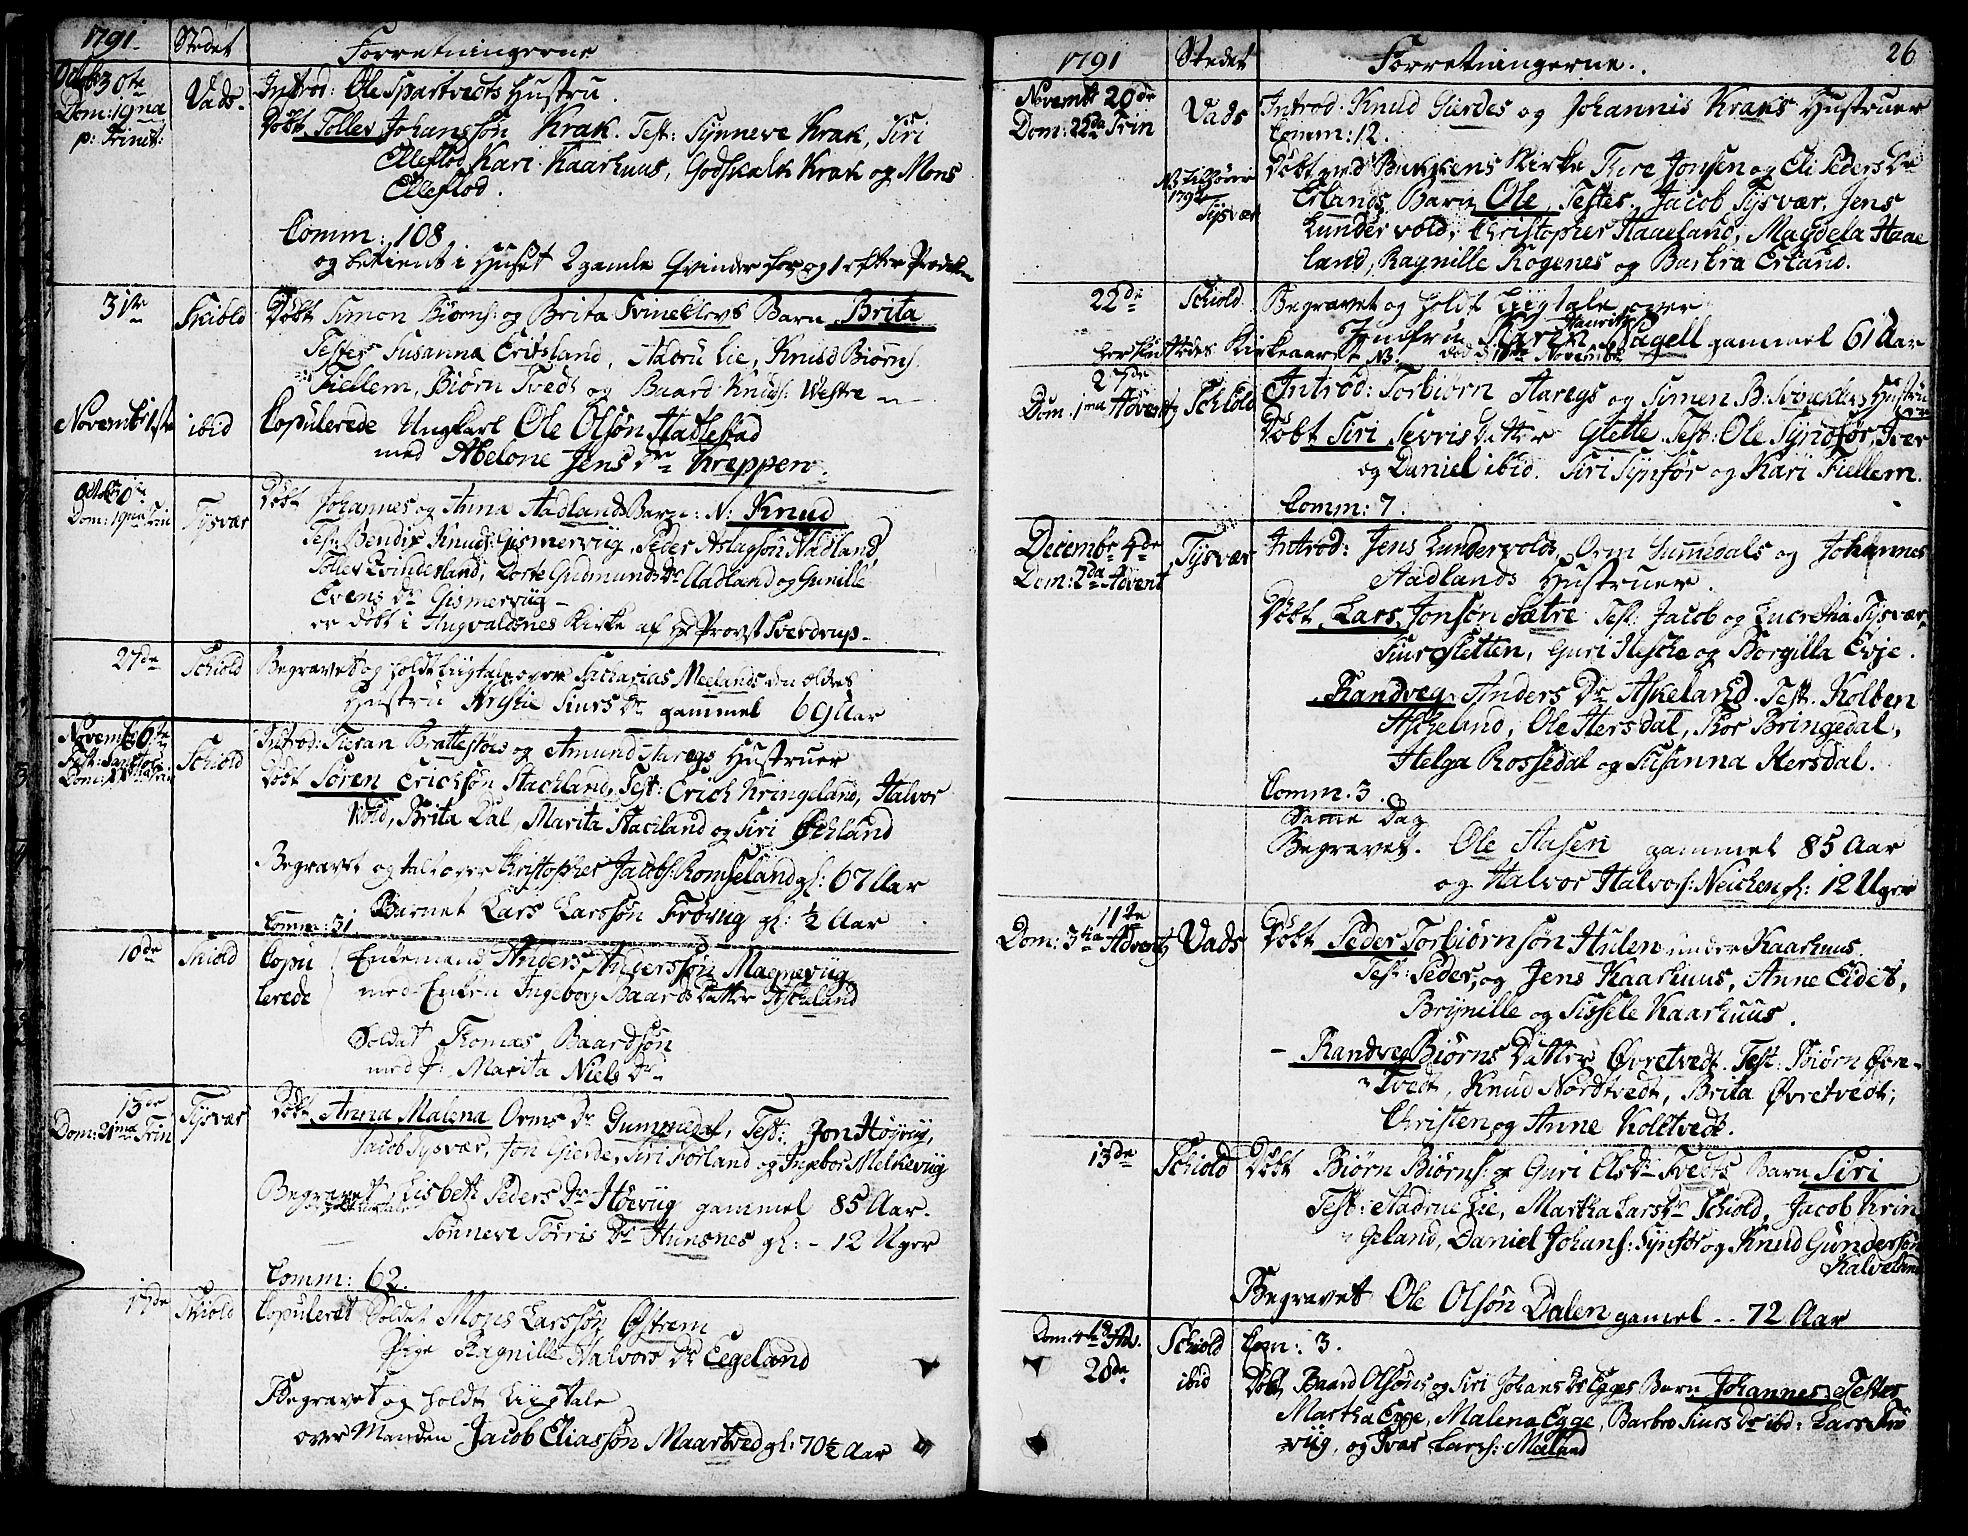 1791. Stedet Forretningerne
Octob: 30te Vads. Introd: Ole Spartvedts Hustru.
Dom: 19ma Døbt Tollev Johanssøn Krak. Test: Synneve Krak, Siri
p: Trinit: Elleflod, Kari Kaarhuus, Godskalk Krak og Mons
Elleflod.
Comm: 108
og betient i Huset 2 gamle Qvinder før og 1 efter Prædiken
31te Skiold Døbt Simon Biørns: og Brita Svineklovs Barn Brita
Testes Susanna Eritsland, Aadru Lie, Knud Biørns:
Fiellem, Biørn Tvedt og Baard Knuds: Westre
Novembr 1ste ibid Copulerede Ungkarl Ole Olsøn Stadlestad
med Abelone Jens Dr Kreppen.
Octob: 30te Tysvær Døbt Johannes og Anna Aadlands Barn: N: Knud
Dom: 19ma Trin Test: Bendix Knuds: Gismerviig, Peder Aslagsøn Nadland
Tollev Qvinderland, Dorte Gudmunds Dr Aadland og Gunille
Evens Dr Gismerviig
er døbt i Augvaldsnes Kirke af Hr Provst Sverdrup.
27de Schiold Begravet og holdt Liigtale over Sacharias Meelands den ældres
Hustru Siurs Dr gammel 69 Aar
Novemb: 6te Schiold Introd: Brattestøes og Amund Aaregs Hustruer
Døbt Søren Erichsøn Stachland, Test: Erich Kringeland, Halvor
Vold, Brita Dal, Marita Staciland og Siri Øchland
Begravet og tal over Christopher Jacobs: Romseland gl: 67 Aar
Barnet Lars Larssøn Frøviig gl: ½ Aar
Comm: 31.
10de Skiold Copu Enkemand Anders Anderssøn Magneviig
lerede med Enken Ingeborg Baards Datter Ascheland
Soldat Thomas Baardsøn
med P: Marita Niels Dr
13de Tysvær Døbt Anna Malena Orms Dr Gummedal, Test: Jon Høyviig,
Dom: 21ma Trin Jacob Tysvær, Jon Gierde, Siri Førland og Ingebor Melkeviig
Begravet Lisbett Peders Dr Høeviig gammel 85 Aar.
Sønneve Tørris Dr Hunsnes gl: - 12 Uger
Comm: 62.
17de Skiold Copuleret Soldat Mons Larssøn Østrem
Pige Ragnille Halvors Dr Eegeland
Begravet og holdt Liigtale
over Manden Jacob Eliassøn Maartved gl: 70½ Aar
1791 Stedet Forretningerne. 26
Novembr 20de Vads Introd. Knud Gierdes og Johannis Kraks Hustruer
Dom: 22da Trin Comm: 12.
NB tilhører Døbt ved Bukkens Kirke Tore Jonsen og Eli Peders Dr
1792 Erlands Barn Ole, Testes. Jacob Tysvær, Jens
Tysvær Lundervold, Christopher Haaeland, Magdela Haae
land, Ragnille Kogenes og Barbra Erland.
22de Schiold Begravet og holdt Liigtale over
Jomfru Karen Hauritz Pagell gammel 61 Aar
Kirkegaarden NB. død d: 18de Novembr
27de Schiold Introd: Torbiørn Aaregs og Simen B: Svineklovs Hustru
Dom: 1ma Advent Døbt Siri Sevris Datter Slette. Test: Ole Synføør, Iver
og Daniel ibid. Siri Synfør og Kari Fiellem.
Comm: 7.
Decembr 4de Tysvær Introd: Jens Lundervolds, Orm Gummedals og Johannes
Dom: 2da Advent Aadlands Hustruer.
Døbt Lars Jonsøn Sætre Test: Jacob og Lucretia Tysvær,
Siur Sletten, Guri Hesche og Borgilla Evje.
Randveg Anders Dr Askeland. Test. Kolben
Ascheland, Ole Hersdal, Thor Bringedal,
Helga Rossedal og Susanna Hersdal.
Comm. 3.
Samme Dag
Begravet. Ole Aasen gammel 85 Aar
og Halvor Halvors: Neichen gl: 12 Uger
11te Vads Døbt Peder Torbiørnsøn Hulen under Kaarhuus
Dom: 3tia Advent Test: Peder, og Jens Kaarhuus, Anne Eidet,
Brynille og Sissele Kaarhuus.
- Randveg Biørns Datter Øvretvedt. Test: Biørn Øvre-
Tvedt, Knud Nordtvedt, Brita Øvretvedt;
Christen og Anne Kolltvedt.
13de Schiold Døbt Biørn Biørns: og Guri Ols Dr Tvedts Barn Siri
Test: Aadrue Lie, Martha Lars Dr Schiold, Jacob Krin
geland, Daniel Johans: Synfør og Knud Gunderssen
Kalveland
Begravet Ole Olsøn Dalen gamel .. 72 Aar
Dom: 4ta Adv. Schiold Com: 3.
28de ibid Døbt Baard Olsøns og Siri Johans Dr Egges Barn Johannes, Testes
Martha Egge, Malena Egge, Barbro Siurs Dr ibd: Lars Frø
viig, og Ivar Lars: Mæland